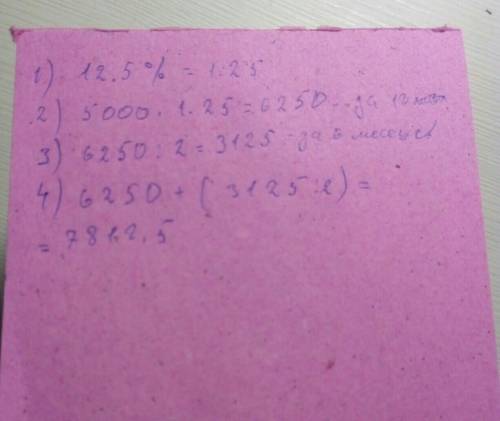 1) 12.5% = 1.25
2) 5000 . 1.25 = 6250 - за 12 мес
3) 6250 : 2 = 3125 - за 6 месяцев
4) 6250 + (3125 : 2) =
= 7812.5